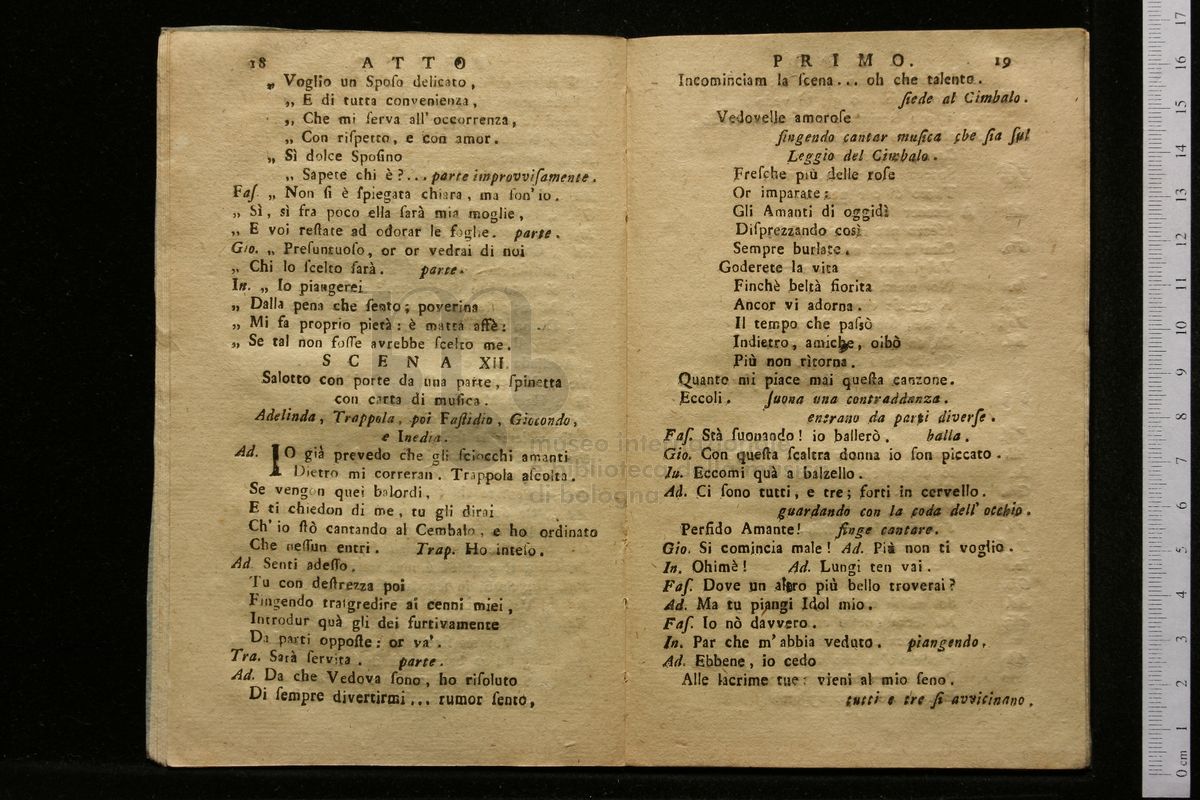 18 ATTO
„ Voglio un Spoſo delicato,
„ E di tutta convenienza,
„ Che mi ſerva all'occorrenza,
„ Con riſpetto, e con amor.
„ Sì dolce Spoſino
„ Sapete chi è?... parte improvviſamente.
Faſ. „ Non ſi è ſpiegata chiara, ma ſon'io.
„ Sì, sì fra poco ella ſarà mia moglie,
„ E voi reſtate ad odorar le foglie. parte.
Gio. „ Preſuntuoſo, or or vedrai di noi
„ Chi lo ſcelto ſarà. parte.
In. „ Io piangerei
„ Dalla pena che ſento; poverina
„ Mi fa proprio pietà: è matta affè:
„ Se tal non foſſe avrebbe ſcelto me.
SCENA XII.
Salotto con porte da una parte, ſpinetta
con carta di muſica.
Adelinda, Trappola, poi Faſtidio, Giocondo,
e Inedia.
Ad. IO già prevedo che gli ſciocchi amanti
Dietro mi correran. Trappola aſcolta.
Se vengon quei balordi,
E ti chiedon di me, tu gli dirai
Ch'io ſtò cantando al Cembalo, e ho ordinato
Che neſſun entri. Trap. Ho inteſo.
Ad. Senti adeſſo.
Tu con deſtrezza poi
Fingendo traſgredire ai cenni miei,
Introdur quà gli dei furtivamente
Da parti oppoſte: or va'.
Tra. Sarà ſervita. parte.
Ad. Da che Vedova ſono, ho riſoluto
Di ſempre divertirmi... rumor ſento,
PRIMO. 19
Incominciam la ſcena... oh che talento.
ſiede al Cimbalo.
Vedovelle amoroſe
fingendo cantar muſica che ſia ſul
Leggio del Cimbalo.
Freſche più delle roſe
Or imparate:
Gli Amanti di oggidì
Diſprezzando così
Sempre burlate.
Goderete la vita
Finchè beltà fiorita
Ancor vi adorna.
Il tempo che paſsò
Indietro, amiche, oibò
Più non ritorna.
Quanto mi piace mai queſta canzone.
Eccoli. ſuona una contraddanza.
entrano da parti diverſe.
Faſ. Stà ſuonando! io ballerò. balla.
Gio. Con queſta ſcaltra donna io ſon piccato.
In. Eccomi quà a balzello.
Ad. Ci ſono tutti, e tre; forti in cervello.
guardando con la coda dell'occhio.
Perfido Amante! finge cantare.
Gio. Si comincia male! Ad. Più non ti voglio.
In. Ohimè! Ad. Lungi ten vai.
Faſ. Dove un altro più bello troverai?
Ad. Ma tu piangi Idol mio.
Faſ. Io nò davvero.
In. Par che m'abbia veduto. piangendo.
Ad. Ebbene, io cedo
Alle lacrime tue: vieni al mio ſeno.
tutti e tre ſi avvicinano.
museo internazionale
e biblioteca della musica
di bologna
0 cm 1 2 3 4 5 6 7 8 9 10 11 12 13 14 15 16 17